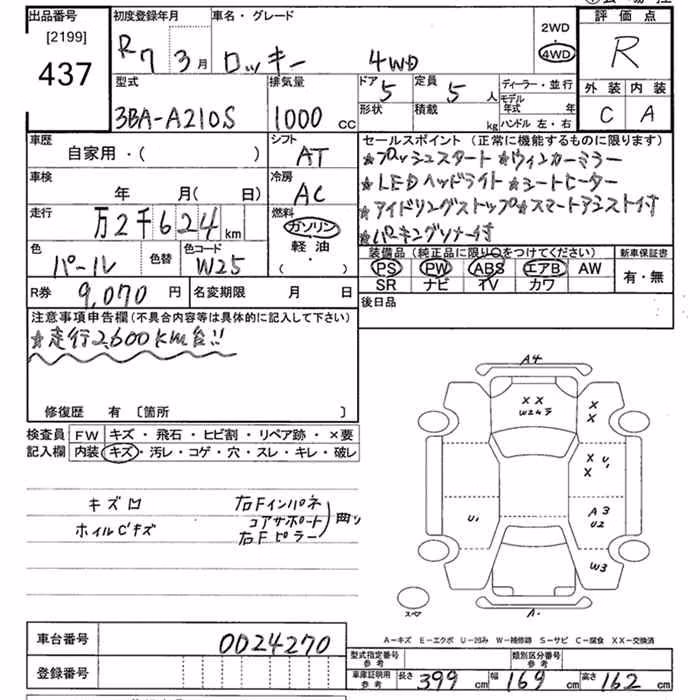 出品番号 初度登録年月 車名・グレード 評価点
[2199] 437
R7 3月 ロッキー 4WD
2WD
4WD
R
外装 内装
C A
型式 排気量 ドア 定員 ディーラー・並行
3BA-A210S 1000cc 5 5人 モデル年式 年
形状 積載 kg ハンドル 左・右
車歴 シフト セールスポイント (正常に機能するものに限ります)
自家用・( ) AT
★プッシュスタート ★ウィンカーミラー
★LEDヘッドライト ★シートヒーター
★アイドリングストップ ★スマートアシスト付
★パーキングソナー付
車検 冷房
年 月( 日) AC
走行 燃料
万2千624km ガソリン
軽油
( ・ )
色 色替 色コード
パール W25
装備品 (純正品に限り○をつけてください) 新車保証書
PS PW ABS エアB AW 有・無
SR ナビ TV カワ
R券 9,070円 名変期限 月 日
後日品
注意事項申告欄(不具合内容等は具体的に記入して下さい)
★走行2,600km台!!
修復歴 有 〔箇所 〕
検査員 FW キズ・飛石・ヒビ割・リペア跡・×要
記入欄 内装 キズ・汚レ・コゲ・穴・スレ・キレ・破レ
キズ凹 右Fインパネ
ホイルCキズ コアサポート
右Fピラー
A4
XX
W2キラ
X
X
X U1
X
U1
A3
U2
W3
スペア
A-キズ E-エクボ U-凹み W-補修跡 S-サビ C-腐食 XX-交換済
車台番号 0024270
登録番号
型式指定番号 参考 類別区分番号 参考
車庫証明用 参考 長さ 399cm 幅 169cm 高さ 162cm